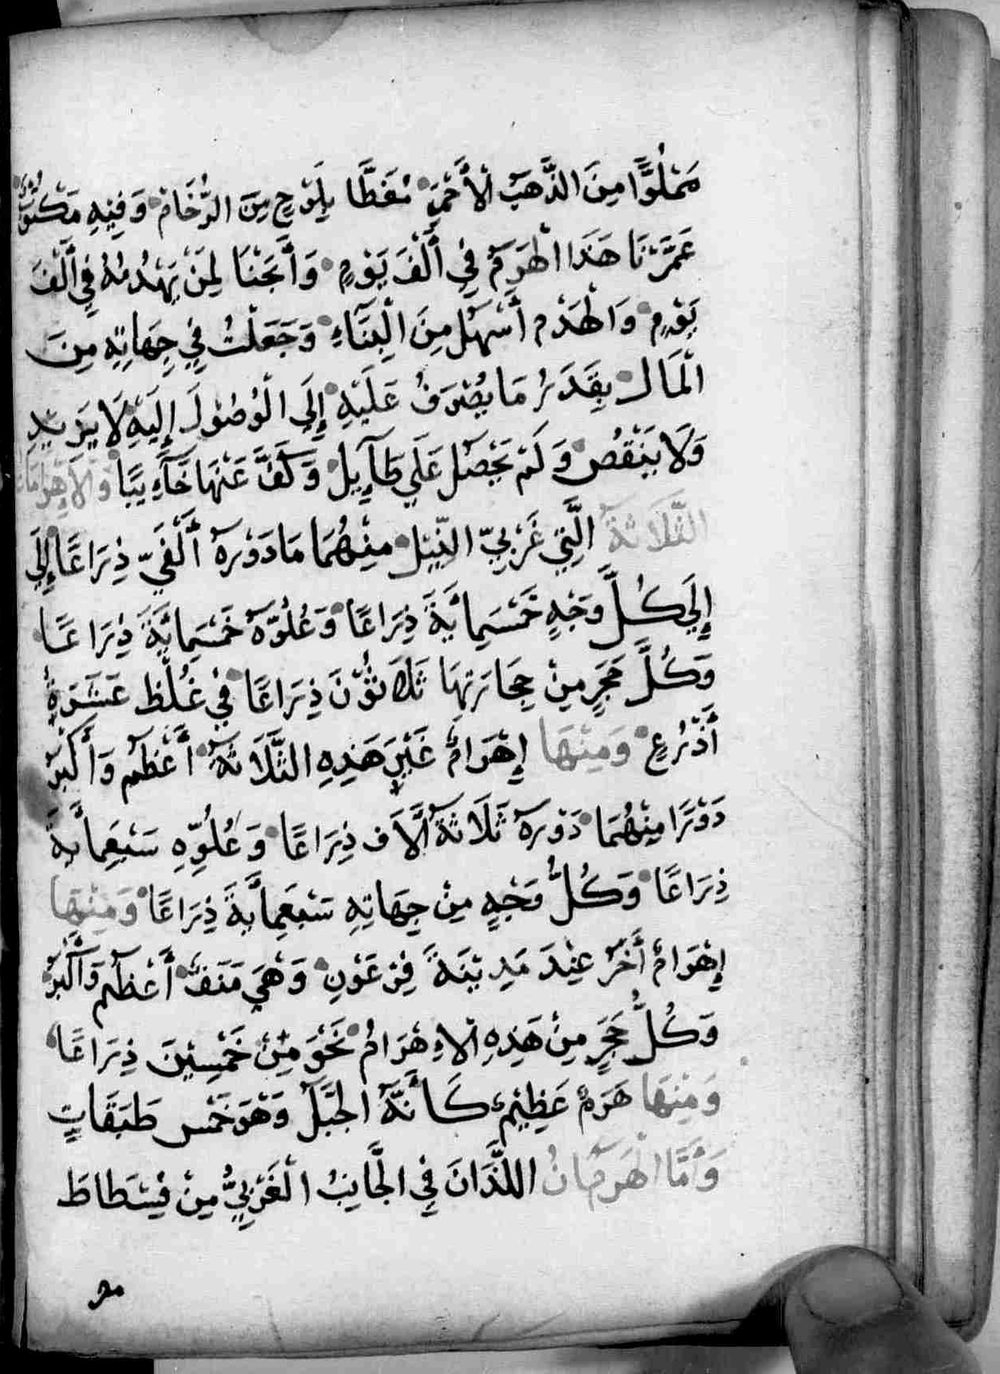 مَمْلُوًّا مِنَ الذَّهَبْ الْأَحْمَرِ مُغَطَّا بِلَوْحٍ مِنَ الرُّخَامْ وَفِيْهِ مَكْتُوْبٌ
عَمَّرْنَا هَذَا الْهَرَمْ فِي أَلْفَ يَوْمٍ وَأَبَحْنَا لِمَنْ يَهْدُمُهُ فِي أَلْفَ
يَوْمٍ وَالْهَدْمْ أَسْهَلْ مِنَ الْبِنَآءِ وَجَعَلْتُ فِيْ جِهَاتِهِ مِنَ
الْمَالْ بِقَدَرْ مَا يُصْرَفُ عَلَيْهِ إِلَى الْوُصُوْلَ إِلَيْهِ لَا يَزِيْدِ
وَلَا يَنْقُصْ وَلَمْ يَحْصَلْ عَلَى طَآيِلْ وَكَفَّ عَنْهَا خَآءِيبًا وَالْاَهْرَامَاتْ
الثَّلَاثَةَ الَّتِي غَرْبِيّ النِّيْلْ مِنْهُمَا مَا دَوْرهُ أَلْفَيّ ذِرَاعًا إِلَي
إِلَى كُلَّ وَجْهٍ خَمْسَمِائَةَ ذِرَاعًا وَعُلُوّهْ خَمْسَمِائَةَ ذِرَاعًا
وَكُلَّ حَجَرٍ مِنْ حِجَارَتِهَا ثَلَاثُوْنَ ذِرَاعًا فِيْ غُلْظْ عَشَرَةِ
أَذْرُعٍ وَمِنْهَا إِهْرَامٌ غَيْرِ هَذِهِ الثَّلَاثَهْ أَعْظَمْ وَأَكْبَرْ
دَوْرًا مِنْهُمَا دَوْرهُ ثَلَاثَةْ اَلَّافْ ذِرَاعًا وَعُلُوِّهِ سَبْعِمِائَةَ
ذِرَاعًا وَكُلُّ وَجْهٍ مِنْ جِهَاتِهِ سَبْعَمِائَةَ ذِرَاعًا وَمِنْهَا
إِهْرَامْ أُخَرْ عِنْدَ مَدِيْنَةَ فِرْعَوْنِ وَهْيَ مَنَفْ أَعْظَمْ وَأَكْبَرْ
وَكُلُّ حَجَرٍ مِنْ هَذِهِ الْاِهْرَامُ نَحْوَ مِنْ خَمْسِيْنَ ذِرَاعًا
وَمِنْهَا هَرَمٌ عَظِيْمٌ كَأَنَّهُ الجَبَلْ وَهَوَ خَمْس طَبَقَاتٍ
وَأَمَّا الْهَرَمَانُ اللَّذَانَ فِي الجَّانِبْ الْغَرْبِيُّ مِنْ فِسْطَاطَ